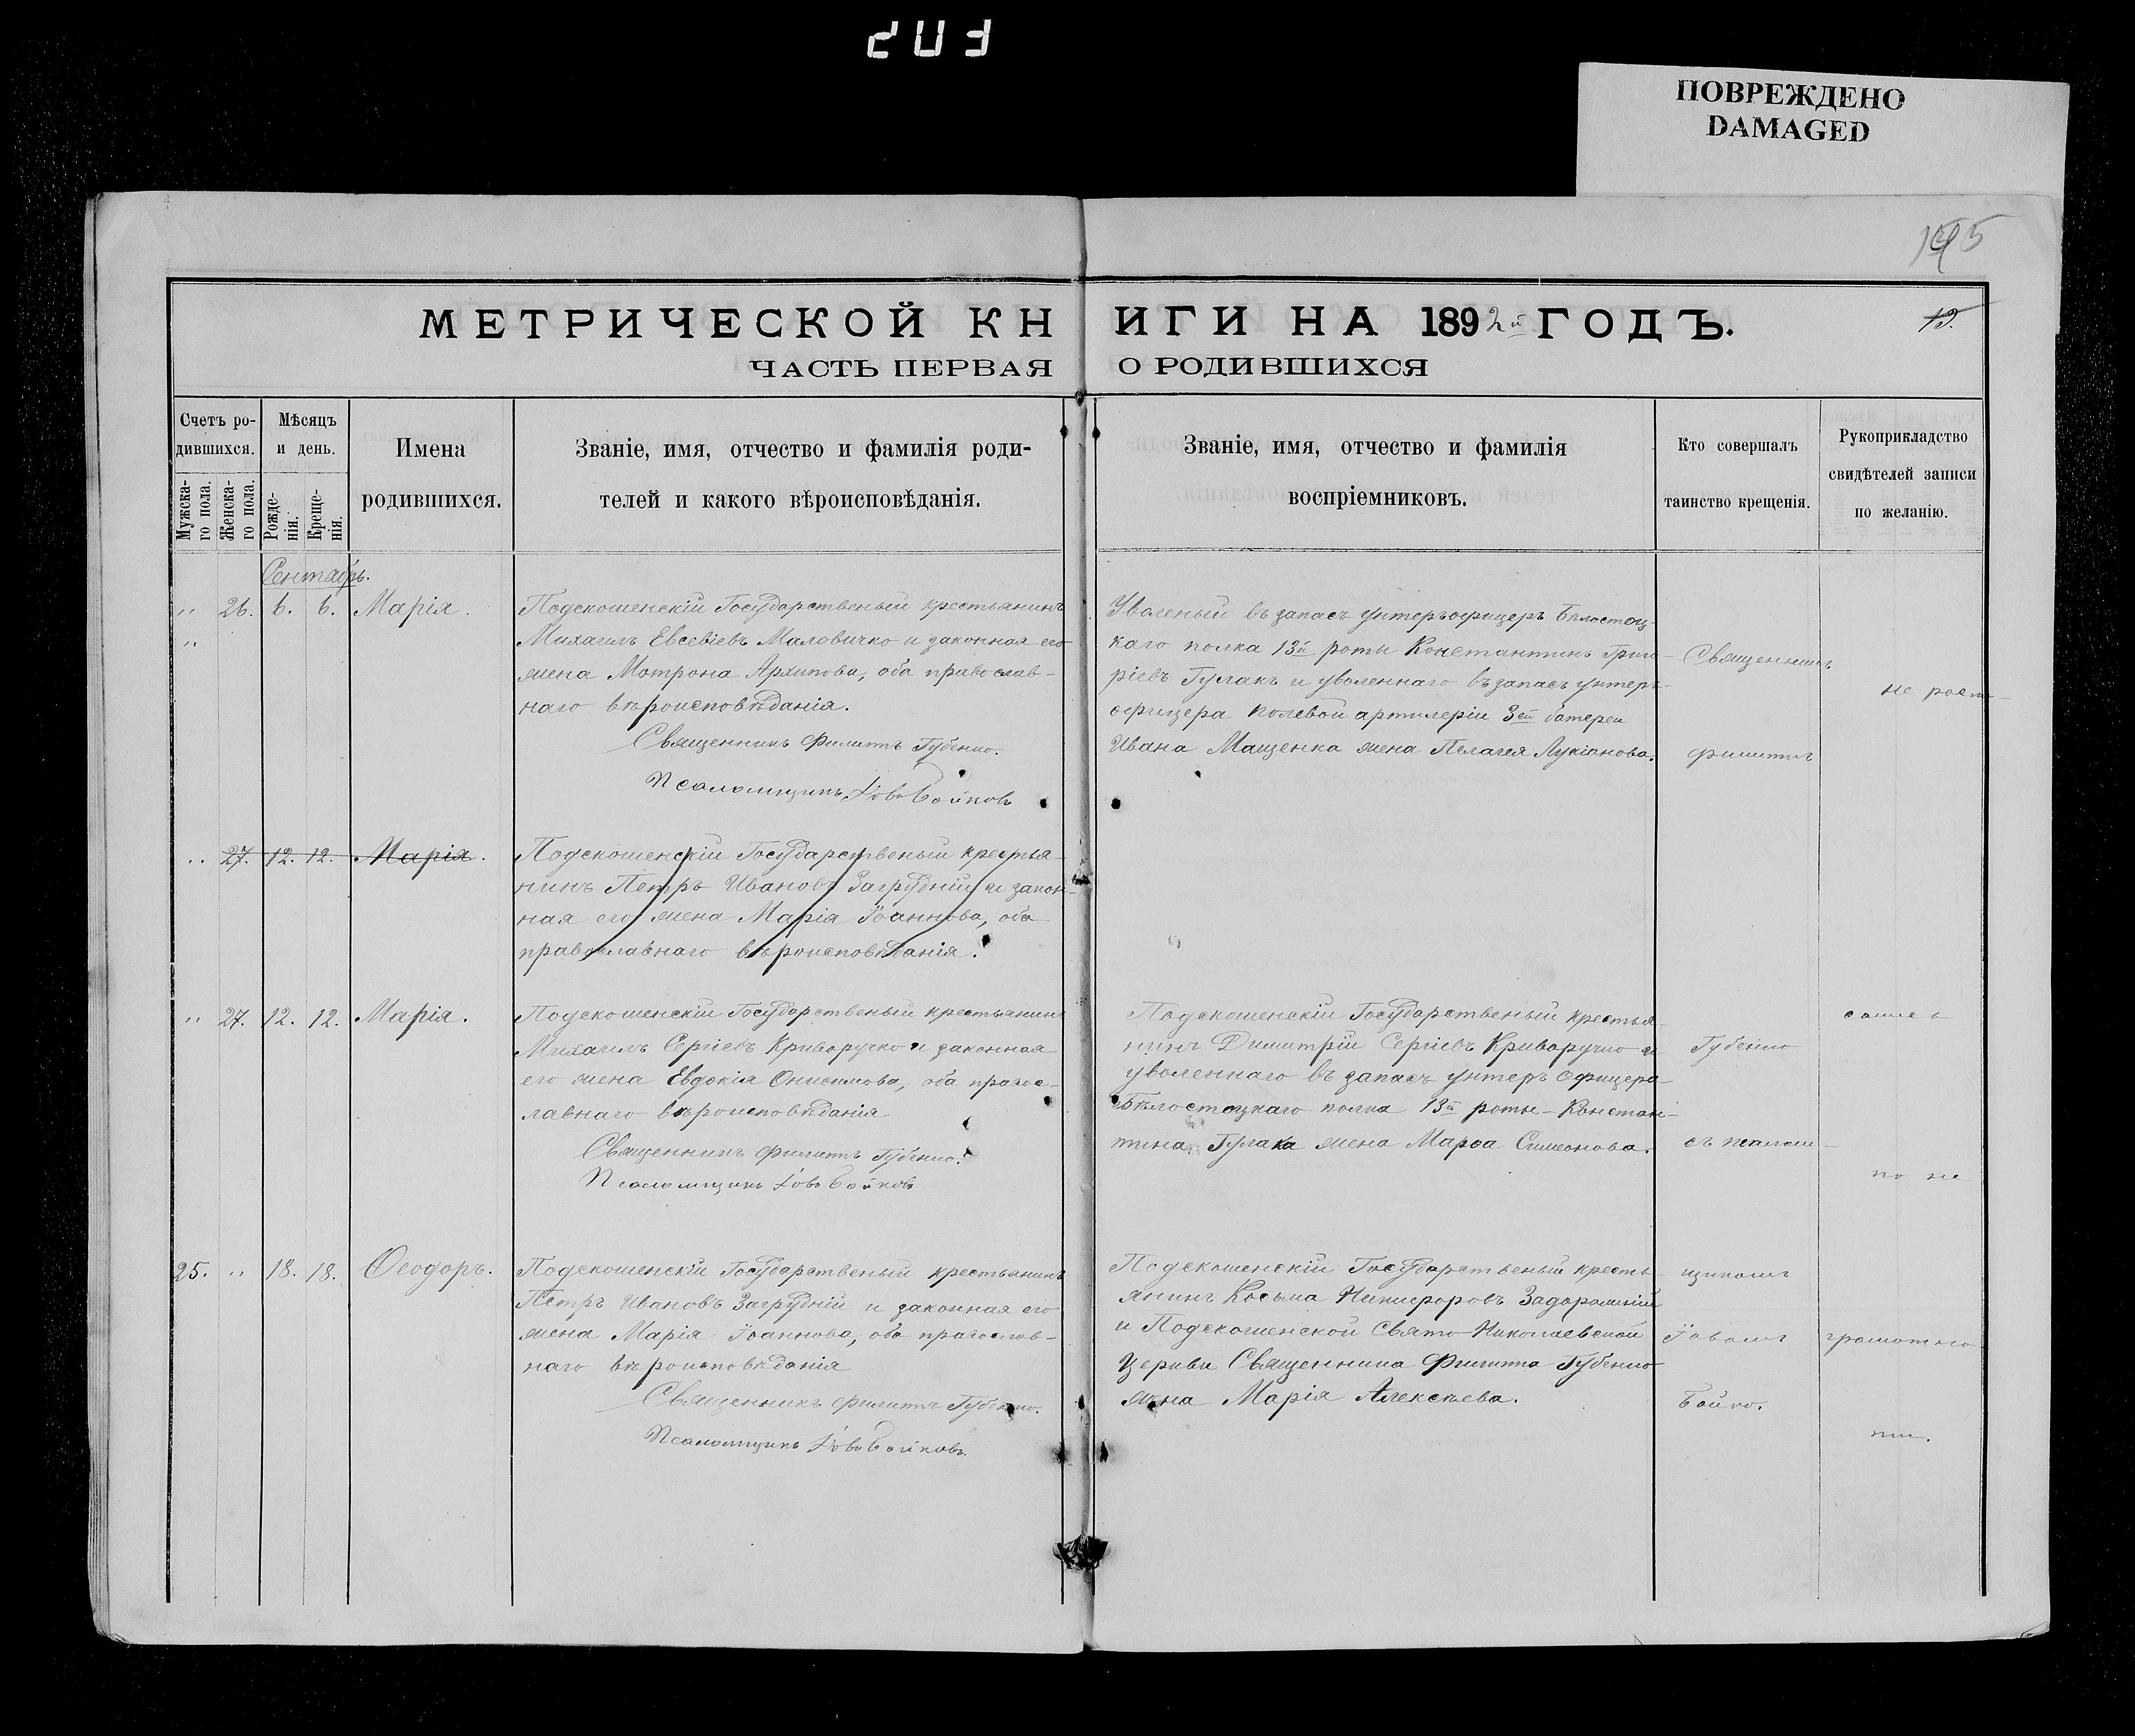 203
ПОВРЕЖДЕНО
DAMAGED
МЕТРИЧЕСКОЙ КНИГИ НА 1892й ГОДЪ.
ЧАСТЬ ПЕРВАЯ О РОДИВШИХСЯ
Счетъ родившихся.
Мужскаго пола.
Женскаго пола.
Мѣсяцъ и день.
Рожденія.
Крещенія.
Имена
родившихся.
Званіе, имя, отчество и фамилія роди-
телей и какого вѣроисповѣданія.
Званіе, имя, отчество и фамилія
воспріемниковъ.
Кто совершалъ
таинство крещенія.
Рукоприкладство
свидѣтелей записи
по желанію.
Сентябрь.
„ 26. 6. 6. Марія.
Подскошенскій Государственый крестьянинъ
Михаилъ Евсевіевъ Маловичко и законная его
жена Мотрона Архипова, оба православ-
наго вѣроисповѣданія.
Священникъ Филиппъ Губенко.
Псаломщикъ
Уволеный въ запасъ унтеръофицеръ Бѣлостоц-
каго полка 13й роты Константинъ Григо-
ріевъ Гулакъ и уволеннаго въ запасъ унтеръ-
офицера полевой артилеріи 3ей батереи
Ивана Мащенка жена Пелагея Лукіанова.
„ 27. 12. 12. Марія.
Подскошенскій Государственый крестья-
нинъ Петръ Ивановъ Загрудній и закон-
ная его жена Марія Іоаннова, оба
православнаго вѣроисповѣданія.
„ 27. 12. 12. Марія.
Подскошенскій Государственый крестьянинъ
Михаилъ Сергіевъ Криворучко и законная
его жена Евдокія Онисимова, оба правос-
лавнаго вѣроисповѣданія
Священникъ Филиппъ Губенко.
Псаломщикъ
Подскошенскій Государственый крестья-
нинъ Димитрій Сергіевъ Криворучко и
уволеннаго въ запасъ унтеръ офицера
Бѣлостоцкаго полка 13й роты Констан-
тина Гулака жена Марѳа Симеонова.
25. „ 18. 18. Ѳеодоръ.
Подскошенскій Государственый крестьянинъ
Петръ Ивановъ Загрудній и законная его
жена Марія Іоаннова, оба православ-
наго вѣроисповѣданія
Священникъ Филиппъ Губенко.
Псаломщикъ
Подскошенскій Государственый кресть-
янинъ Косьма Никифоровъ Задорожній
и Подскошенской Свято-Николаевской
Церкви Священника Филиппа Губенко
жена Марія Алексѣева.
Священникъ
Филиппъ
Губенко
съ псалом-
щикомъ
Бойко.
не
по не
грамотно